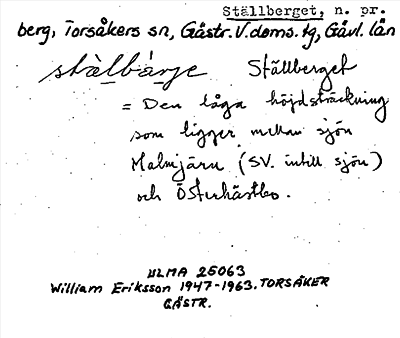 Ställberget, n. pr.
berg, Torsåkers sn, Gästr. V. doms. tg, Gävl. län
stälbärje Ställberget
= Den låga höjdsträckning
som ligger mellan sjön
Malmjärn (SV. intill sjön)
och Österhästbo.
ULMA 25063
William Eriksson 1947-1963. TORSÅKER
GÄSTR.